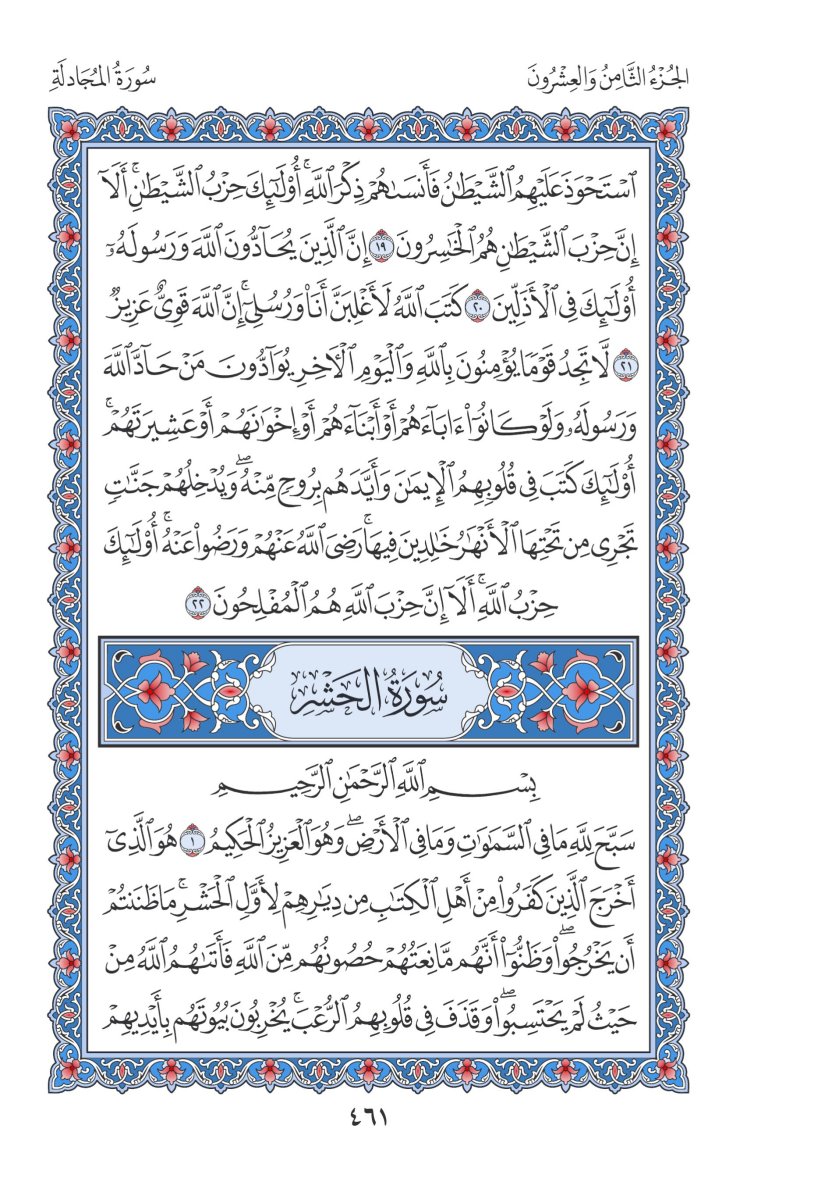 الجُزْءُ الثَّامِنُ وَالعِشْرُونَ
سُورَةُ المُجَادلَةِ
ٱسْتَحْوَذَ عَلَيْهِمُ ٱلشَّيْطَٰنُ فَأَنسَىٰهُمْ ذِكْرَ ٱللَّهِۚ أُوْلَٰٓئِكَ حِزْبُ ٱلشَّيْطَٰنِۚ أَلَآ
إِنَّ حِزْبَ ٱلشَّيْطَٰنِ هُمُ ٱلْخَٰسِرُونَ ١٩ إِنَّ ٱلَّذِينَ يُحَآدُّونَ ٱللَّهَ وَرَسُولَهُۥٓ
أُوْلَٰٓئِكَ فِى ٱلْأَذَلِّينَ ٢٠ كَتَبَ ٱللَّهُ لَأَغْلِبَنَّ أَنَا۠ وَرُسُلِىٓۚ إِنَّ ٱللَّهَ قَوِىٌّ عَزِيزٌ
٢١ لَّا تَجِدُ قَوْمًا يُؤْمِنُونَ بِٱللَّهِ وَٱلْيَوْمِ ٱلْءَاخِرِ يُوَآدُّونَ مَنْ حَآدَّ ٱللَّهَ
وَرَسُولَهُۥ وَلَوْ كَانُوٓاْ ءَابَآءَهُمْ أَوْ أَبْنَآءَهُمْ أَوْ إِخْوَٰنَهُمْ أَوْ عَشِيرَتَهُمْۚ
أُوْلَٰٓئِكَ كَتَبَ فِى قُلُوبِهِمُ ٱلْإِيمَٰنَ وَأَيَّدَهُم بِرُوحٍ مِّنْهُۖ وَيُدْخِلُهُمْ جَنَّٰتٍ
تَجْرِى مِن تَحْتِهَا ٱلْأَنْهَٰرُ خَٰلِدِينَ فِيهَاۚ رَضِىَ ٱللَّهُ عَنْهُمْ وَرَضُواْ عَنْهُۚ أُوْلَٰٓئِكَ
حِزْبُ ٱللَّهِۚ أَلَآ إِنَّ حِزْبَ ٱللَّهِ هُمُ ٱلْمُفْلِحُونَ ٢٢
سُورَةُ الحَشْرِ
بِسْمِ ٱللَّهِ ٱلرَّحْمَٰنِ ٱلرَّحِيمِ
سَبَّحَ لِلَّهِ مَا فِى ٱلسَّمَٰوَٰتِ وَمَا فِى ٱلْأَرْضِۖ وَهُوَ ٱلْعَزِيزُ ٱلْحَكِيمُ ١ هُوَ ٱلَّذِىٓ
أَخْرَجَ ٱلَّذِينَ كَفَرُواْ مِنْ أَهْلِ ٱلْكِتَٰبِ مِن دِيَٰرِهِمْ لِأَوَّلِ ٱلْحَشْرِۚ مَا ظَنَنتُمْ
أَن يَخْرُجُواْۖ وَظَنُّوٓاْ أَنَّهُم مَّانِعَتُهُمْ حُصُونُهُم مِّنَ ٱللَّهِ فَأَتَىٰهُمُ ٱللَّهُ مِنْ
حَيْثُ لَمْ يَحْتَسِبُواْۖ وَقَذَفَ فِى قُلُوبِهِمُ ٱلرُّعْبَۚ يُخْرِبُونَ بُيُوتَهُم بِأَيْدِيهِمْ
٤٦١